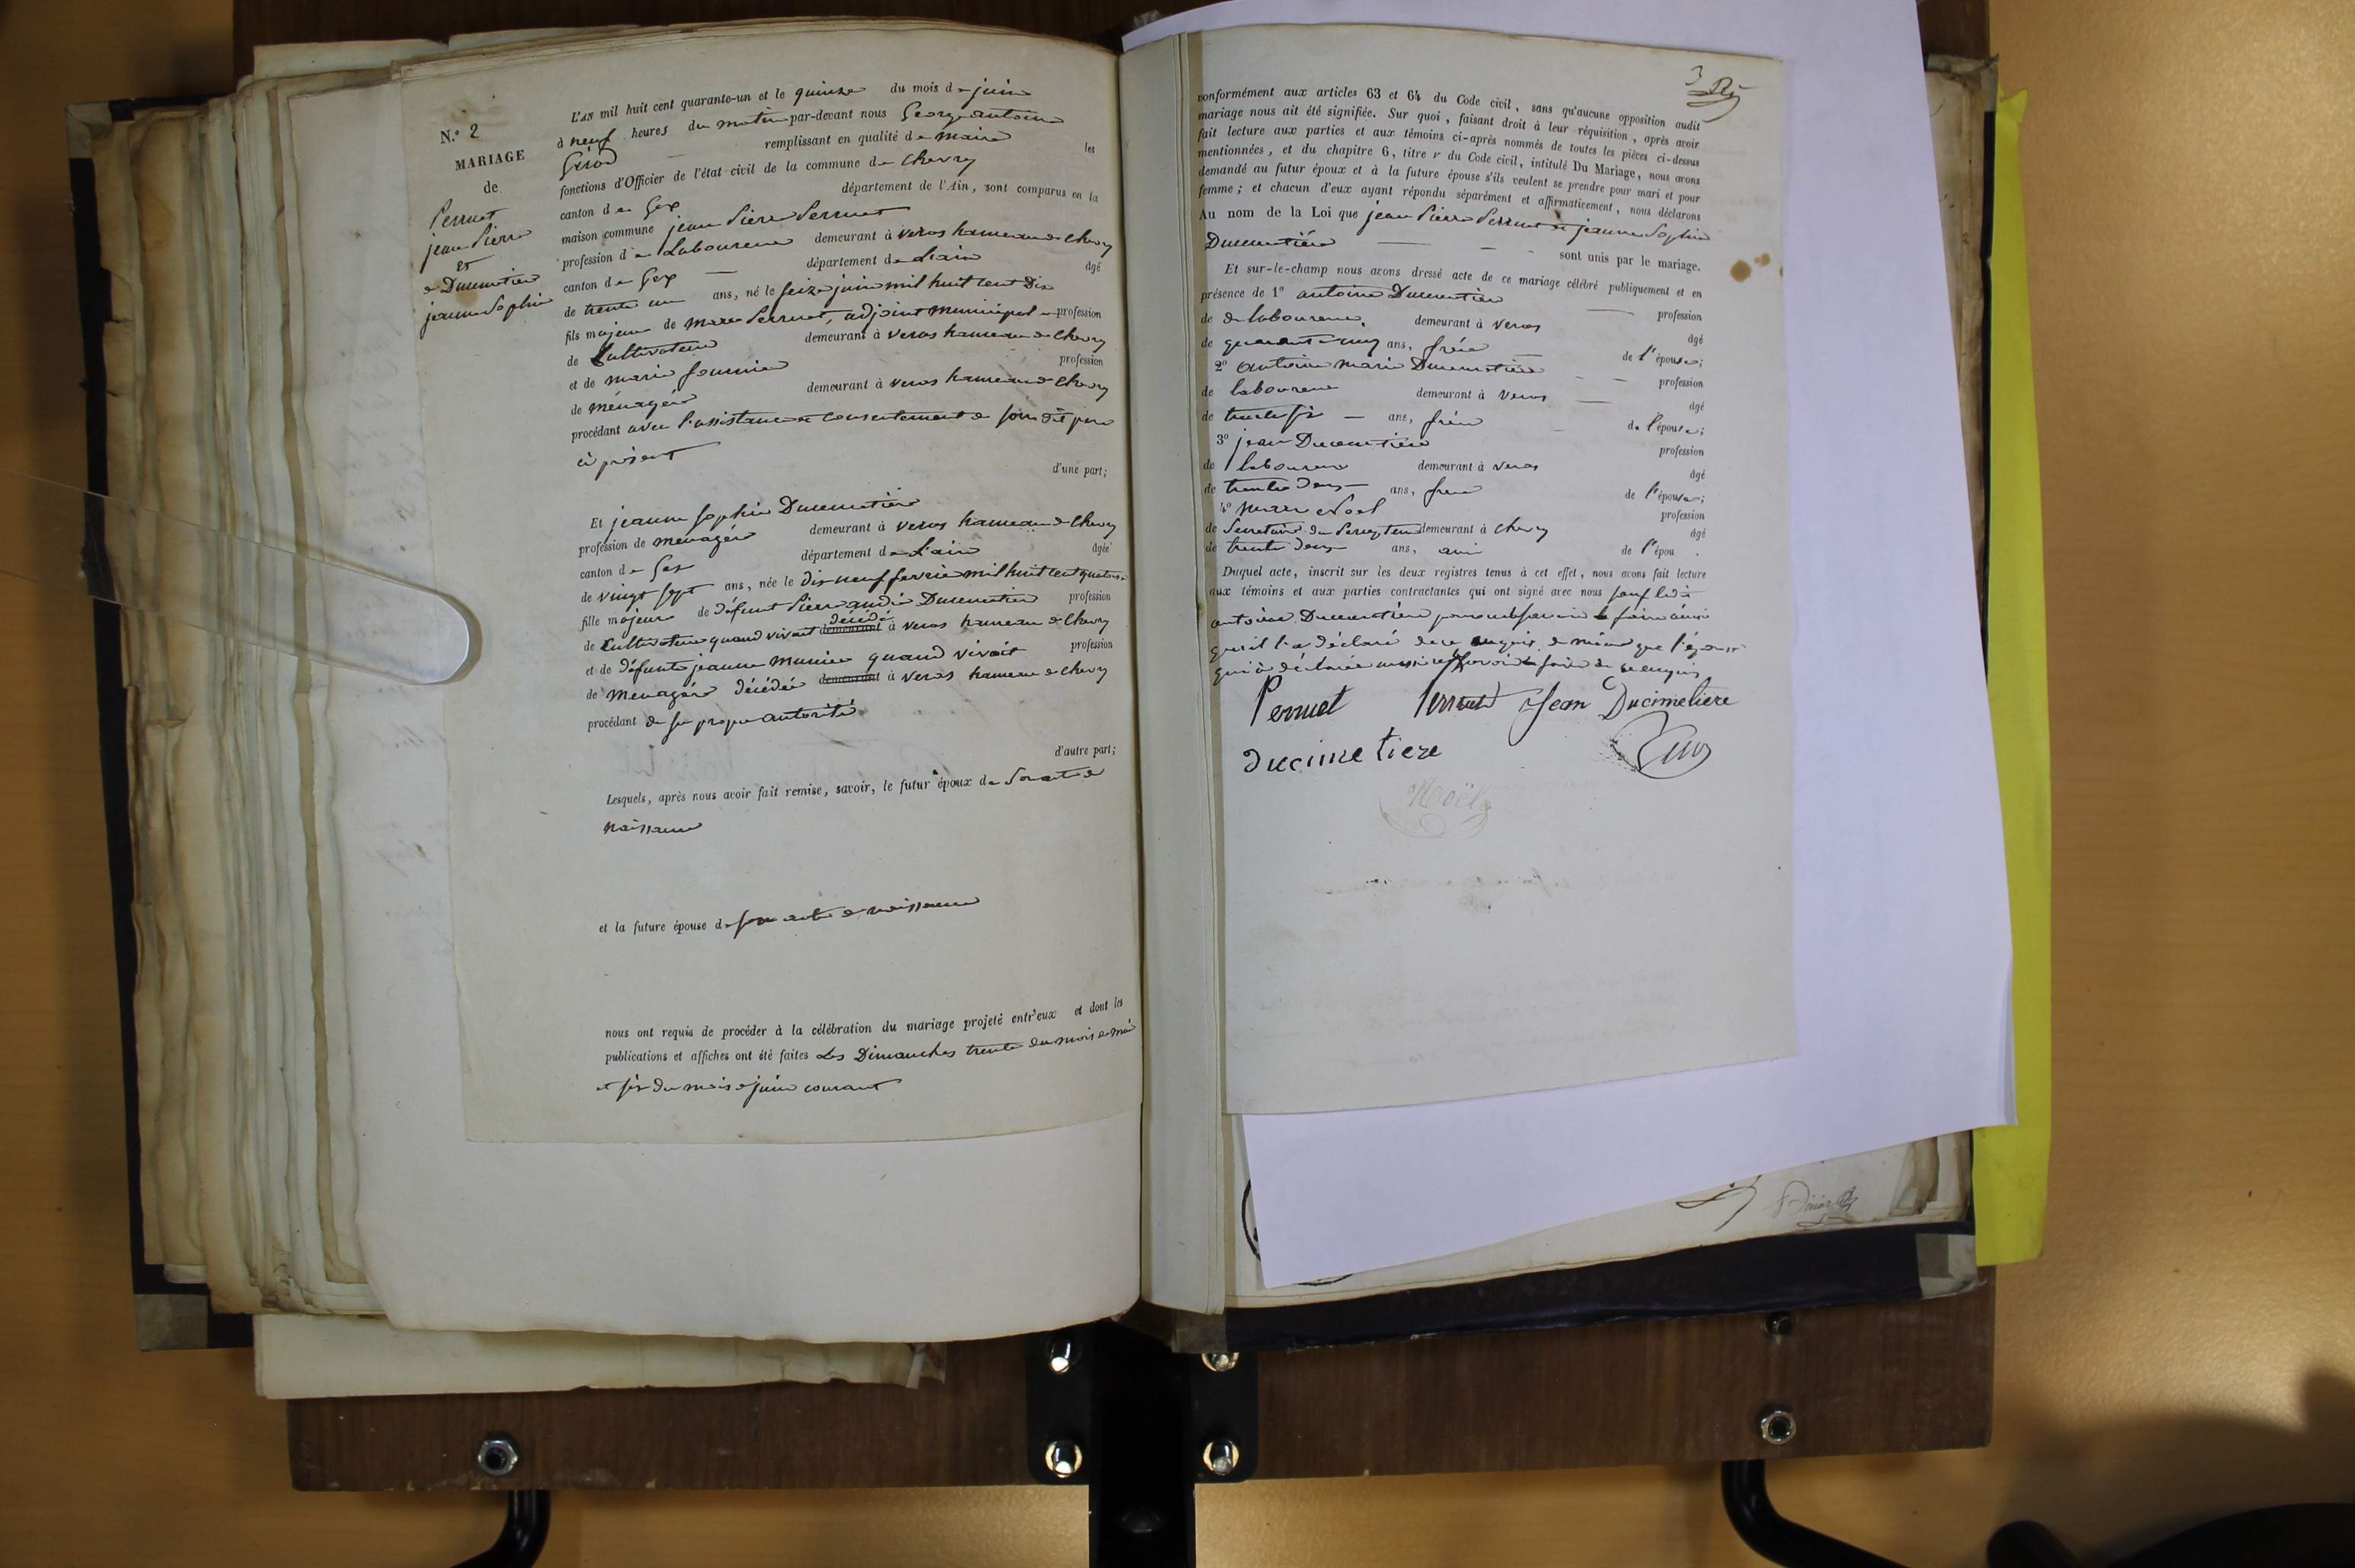 N.º 2
MARIAGE
de
Perruet
jean Pierre
et
Ducimetière
jeanne Sophie
L'AN mil huit cent quarante-un et le quinze du mois de juin
à neuf heures du matin par-devant nous George antoine
Girod remplissant en qualité de maire les
fonctions d'Officier de l'état civil de la commune de Chevry
canton de Gex département de l'Ain, sont comparus en la
maison commune jean Pierre Perruet
profession de Laboureur demeurant à veras hameau de Chevry
canton de Gex département de L'ain âgé
de trente un ans, né le seize juin mil huit cent dix
fils majeur de marc Perruet, adjoint municipal profession
de Cultivateur demeurant à veras hameau de Chevry
et de marie fournier profession
de ménagère demeurant à veras hameau de Chevry
procédant avec l'assistance et consentement de son dit père
ci présent
d'une part;
Et jeanne sophie Ducimetière
profession de menagère demeurant à veras hameau de Chevry
canton de Gex département de L'ain âgée
de vingt sept ans, née le dix neuf fevrier mil huit cent quatorze
fille majeure de défunt Pierre andré Ducimetière profession
de Cultivateur quand vivait décédé à veras hameau de Chevry
et de défunte jeanne munier quand vivait profession
de menagère décédée demeurant à veras hameau de Chevry
procédant de sa propre autorité
d'autre part;
Lesquels, après nous avoir fait remise, savoir, le futur époux de son acte de
naissance
et la future épouse de son acte de naissance
nous ont requis de procéder à la célébration du mariage projeté entr'eux et dont les
publications et affiches ont été faites Les Dimanches trente du mois de mai
et six du mois de juin courant
conformément aux articles 63 et 64 du Code civil, sans qu'aucune opposition audit
mariage nous ait été signifiée. Sur quoi, faisant droit à leur réquisition, après avoir
fait lecture aux parties et aux témoins ci-après nommés de toutes les pièces ci-dessus
mentionnées, et du chapitre 6, titre v du Code civil, intitulé Du Mariage, nous avons
demandé au futur époux et à la future épouse s'ils veulent se prendre pour mari et pour
femme; et chacun d'eux ayant répondu séparément et affirmativement, nous déclarons
Au nom de la Loi que jean Pierre Perruet et jeanne Sophie
Ducimetière sont unis par le mariage.
Et sur-le-champ nous avons dressé acte de ce mariage célébré publiquement et en
présence de 1º antoine Ducimetière profession
de de laboureur, demeurant à veras âgé
de quarante ans, frère de l'épouse;
2º antoine marie Ducimetière profession
de laboureur demeurant à veras âgé
de trente six ans, frère de l'épouse;
3º jean Ducimetière profession
de laboureur demeurant à veras âgé
de trente deux ans, frère de l'épouse;
4º marc Noel profession
de Secretaire du Percepteur demeurant à Chevry âgé
de trente deux ans, ami de l'épou .
Duquel acte, inscrit sur les deux registres tenus à cet effet, nous avons fait lecture
aux témoins et aux parties contractantes qui ont signé avec nous sauf ledit
antoine Ducimetière pour ne savoir le faire ainsi
qu'il l'a déclaré de ce enquis de même que l'épouse
qui a déclarée aussi ne savoir le faire de ce enquis
Perruet Perruet Jean Ducimetiere
ducimetiere
Noël